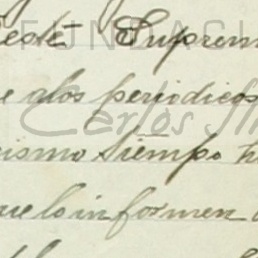 Suprem
e alos periodicos
ismo tiempo h
que lo informen
FUNDACI
Carlos